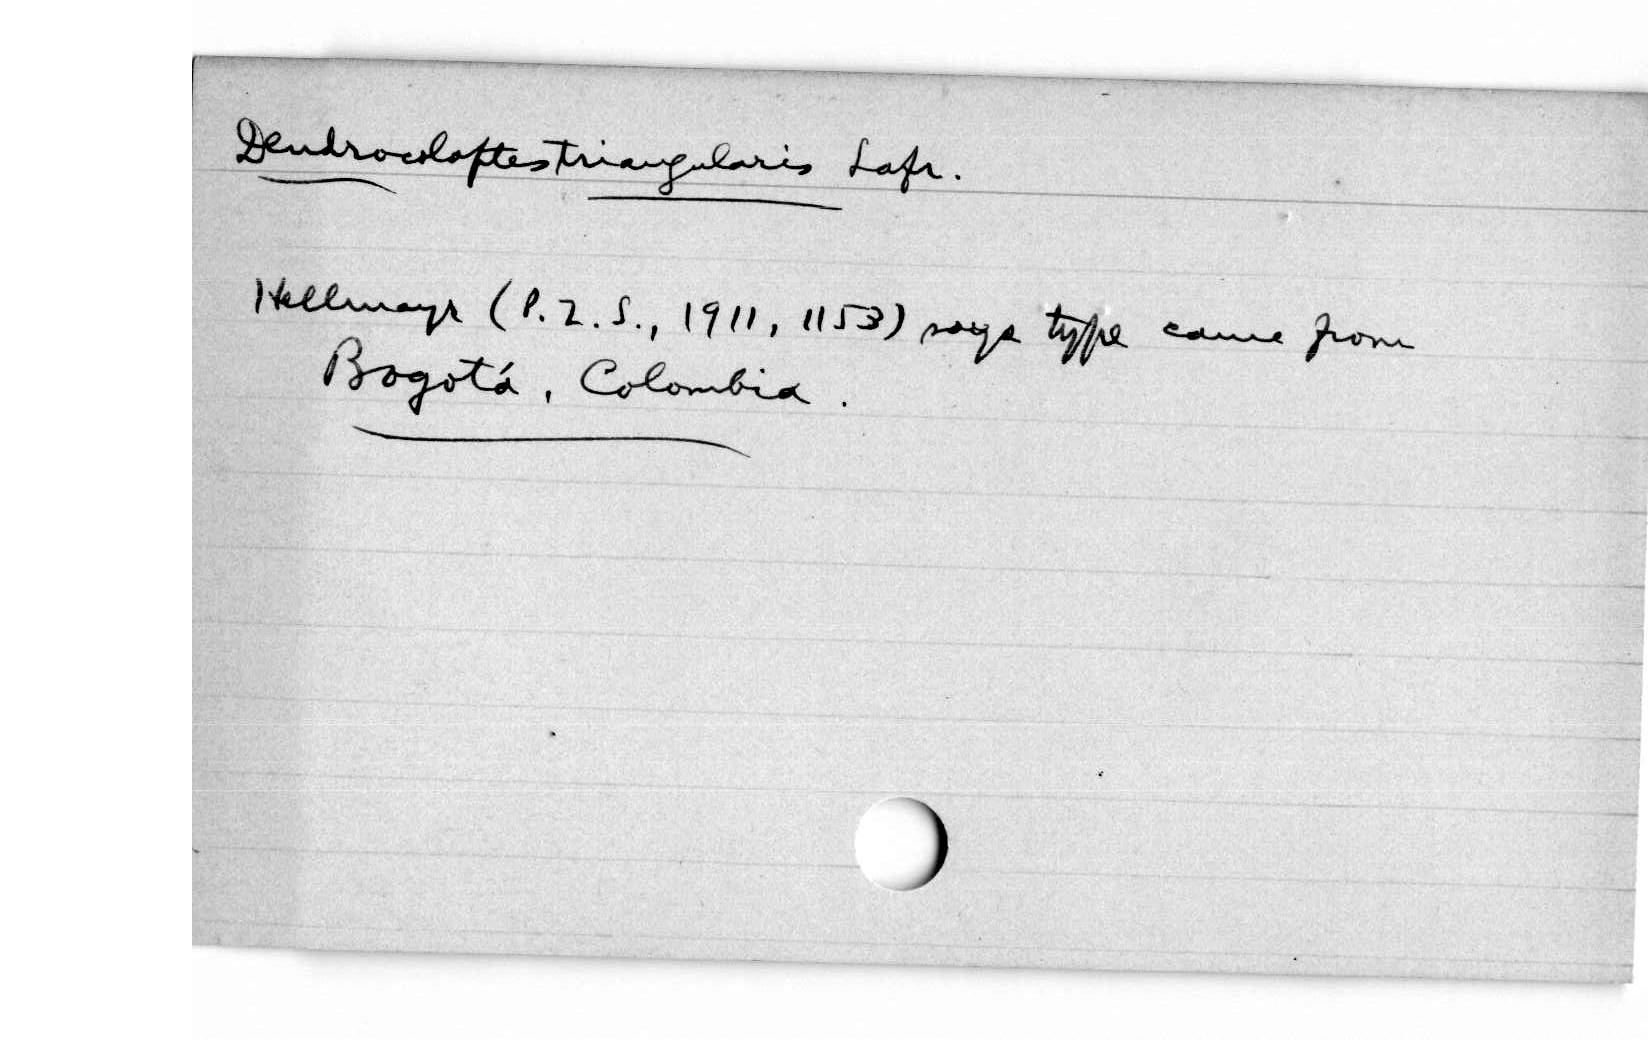 Dendrocolaptes triangularis Lafr.
Hellmayr (P.Z.S., 1911, 1153) says type came from
Bogotá, Colombia.